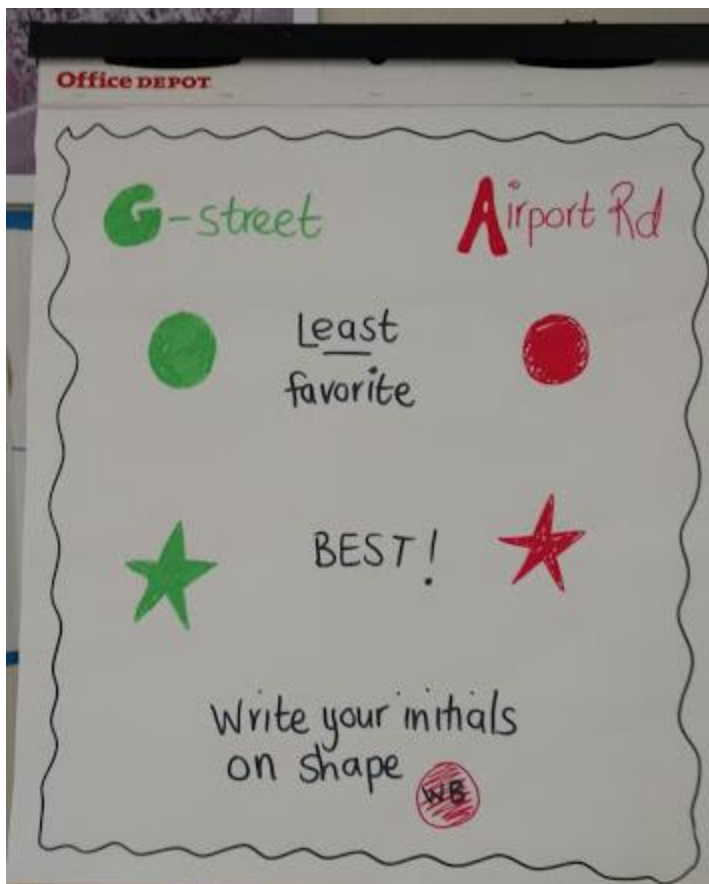 Office DEPOT
G-street
Airport Rd
Least
favorite
BEST!
Write your initials
on shape
WB